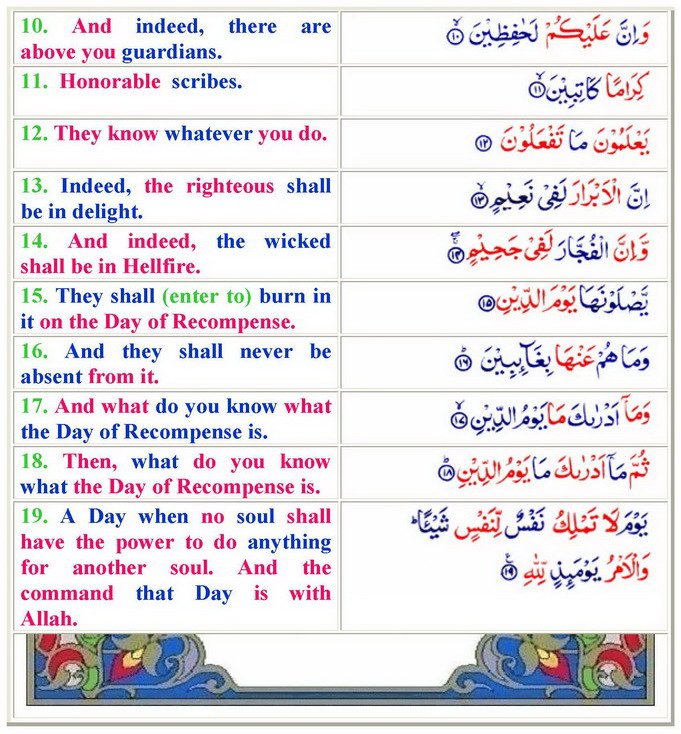 10. And indeed, there are
above you guardians.
وَاِنَّ عَلَيْكُمْ لَحٰفِظِيْنَ ۙ‏﴿۱۰﴾
11. Honorable scribes.
كِرَامًا كَاتِبِيْنَ ۙ‏﴿۱۱﴾
12. They know whatever you do.
يَعْلَمُوْنَ مَا تَفْعَلُوْنَ ﴿۱۲﴾
13. Indeed, the righteous shall
be in delight.
اِنَّ الْاَبْرَارَ لَفِىْ نَعِيْمٍ ۙ‏﴿۱۳﴾
14. And indeed, the wicked
shall be in Hellfire.
وَّاِنَّ الْفُجَّارَ لَفِىْ جَحِيْمٍ ۖۚ‏﴿۱۴﴾
15. They shall (enter to) burn in
it on the Day of Recompense.
يَّصْلَوْنَهَا يَوْمَ الدِّيْنِ ﴿۱۵﴾
16. And they shall never be
absent from it.
وَمَا هُمْ عَنْهَا بِغَآٮِٕبِيْنَ ؕ‏﴿۱۶﴾
17. And what do you know what
the Day of Recompense is.
وَمَاۤ اَدْرٰٮكَ مَا يَوْمُ الدِّيْنِ ۙ‏﴿۱۷﴾
18. Then, what do you know
what the Day of Recompense is.
ثُمَّ مَاۤ اَدْرٰٮكَ مَا يَوْمُ الدِّيْنِ ؕ‏﴿۱۸﴾
19. A Day when no soul shall
have the power to do anything
for another soul. And the
command that Day is with
Allah.
يَوْمَ لَا تَمْلِكُ نَفْسٌ لِّنَفْسٍ شَيْـًٔـا ؕ
وَالْاَمْرُ يَوْمَٮِٕذٍ لِّلّٰهِ ﴿۱۹﴾